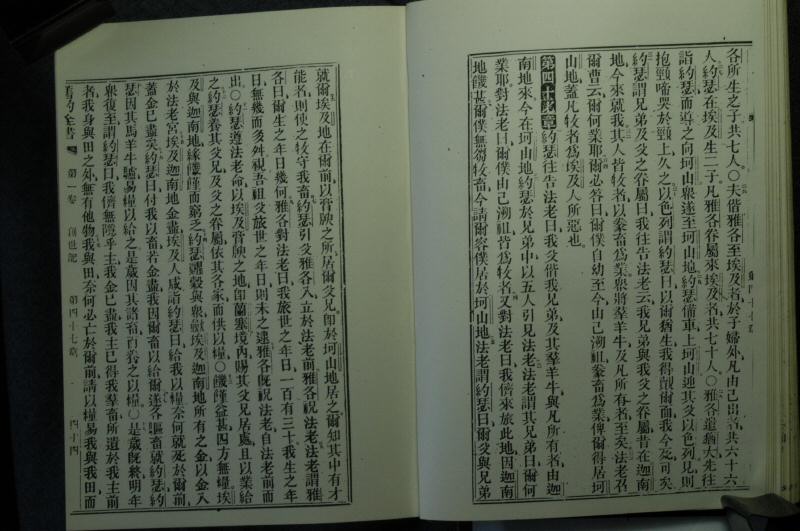 各所生之子共七人○夫偕雅各至埃及者於子婦外凡由己出者共六十六
人約瑟在埃及生二子凡雅各眷屬來埃及者共七十人○雅各遣猶大先往
詣約瑟而導之向坷山眾遂至坷山地約瑟備車上坷山迎其父以色列見則
抱頸啼哭於頸上久之以色列謂約瑟曰以爾猶生我得覿爾面我今死可矣
約瑟謂兄弟及父之眷屬曰我往告法老云我兄弟與我父之眷屬昔在迦南
地今來就我其人皆牧者以豢畜為業眾將羣羊牛及凡所有者至矣法老召
爾曹云爾何業耶爾必答曰爾僕自幼至今由己溯祖豢畜為業俾爾得居坷
山地蓋凡牧者為埃及人所惡也
第四十七章約瑟往告法老曰我父偕我兄弟及其羣羊牛與凡所有者由迦
南地來今在坷山地約瑟於兄弟中以五人引見法老法老謂其兄弟曰爾何
業耶對法老曰爾僕由己溯祖皆為牧者又對法老曰我儕來旅此地因迦南
地饑甚爾僕無芻牧畜今請爾容僕居於坷山地法老謂約瑟曰爾父與兄弟
就爾埃及地在爾前以膏腴之所居爾父兄即於坷山地居之爾知其中有才
能者則使之牧守我畜約瑟引父雅各入立於法老前雅各祝法老法老謂雅
各曰爾生之年日幾何雅各對法老曰我旅世之年日一百有三十我生之年
日無幾而多舛視吾祖父旅世之年日則未之逮雅各既祝法老自法老前而
出○約瑟遵法老命以埃及膏腴之地即蘭塞境內賜其父兄居處且以業給
之約瑟養其父兄及父之眷屬依其各家而供以糧○饑饉益甚四方無糧埃
及與迦南地緣饑饉而窮乏約瑟糶穀與眾斂埃及迦南地所有之金以金入
於法老宮埃及迦南地金盡埃及人咸詣約瑟曰給我以糧奈何就死於爾前
蓋金已盡矣約瑟曰付我以畜若金盡我因爾畜以給爾遂各驅畜就約瑟約
瑟因其馬羊牛驢易糧以給之是歲因其諸畜而養之以糧○是歲既終明年
眾復至謂約瑟曰我儕無隱乎主我金已盡我主已得我羣畜所遺於我主前
者我身與田之外無有他物我與田奈何必亡於爾前請以糧易我與我田而
舊約全書 第一卷 創世記 第四十七章 四十四